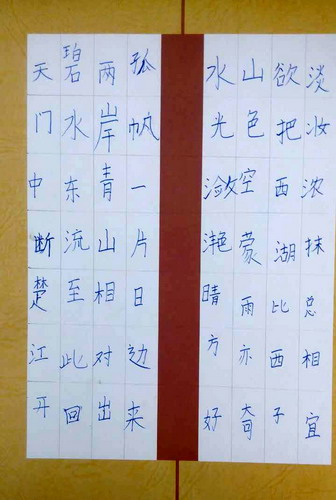 天门中断楚江开
碧水东流至此回
两岸青山相对出
孤帆一片日边来
水光潋滟晴方好
山色空蒙雨亦奇
欲把西湖比西子
淡妆浓抹总相宜